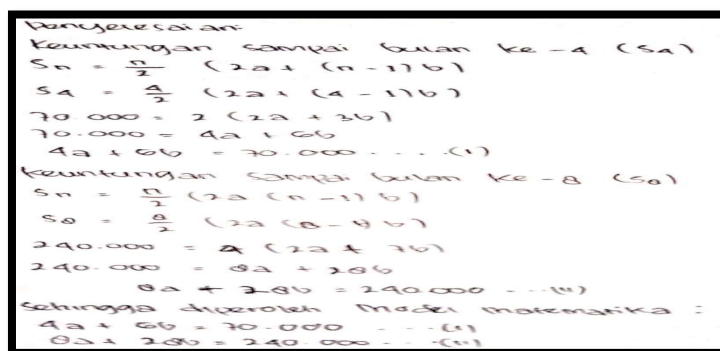 Penyelesaian:
Keuntungan sampai bulan ke-4 (S4)
Sn = n/2 (2a + (n-1)b)
S4 = 4/2 (2a + (4-1)b)
70.000 = 2 (2a + 3b)
70.000 = 4a + 6b
4a + 6b = 70.000 .....(i)
Keuntungan sampai bulan ke-8 (S8)
Sn = n/2 (2a (n-1) b)
S8 = 8/2 (2a (8-1) b)
240.000 = 4 (2a + 7b)
240.000 = 8a + 28b
8a + 28b = 240.000 ...(ii)
Sehingga diperoleh model matematika :
4a + 6b = 70.000 ....(i)
8a + 28b = 240.000 ...(ii)